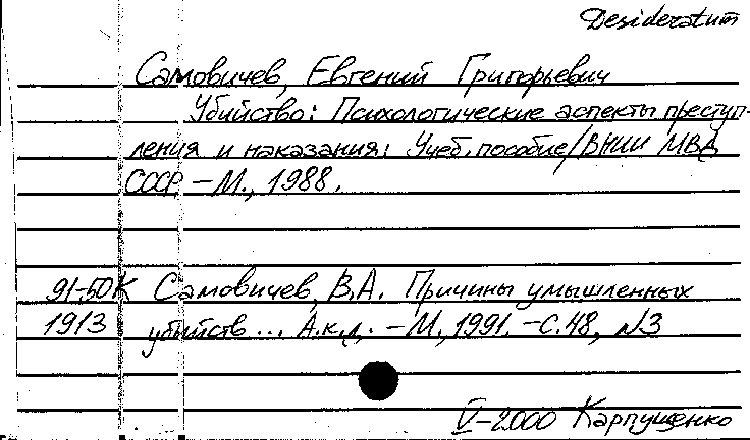 Desideratum
Самовичев, Евгений Григорьевич
Убийство: Психологические аспекты преступ-
ления и наказания: Учеб. пособие/ВНИИ МВД
СССР. - М., 1988.
91-50К Самовичев, В.А. Причины умышленных
1913 убийств... А.к.д. - М., 1991. - С. 48, №3
V-2000 Карпушенко